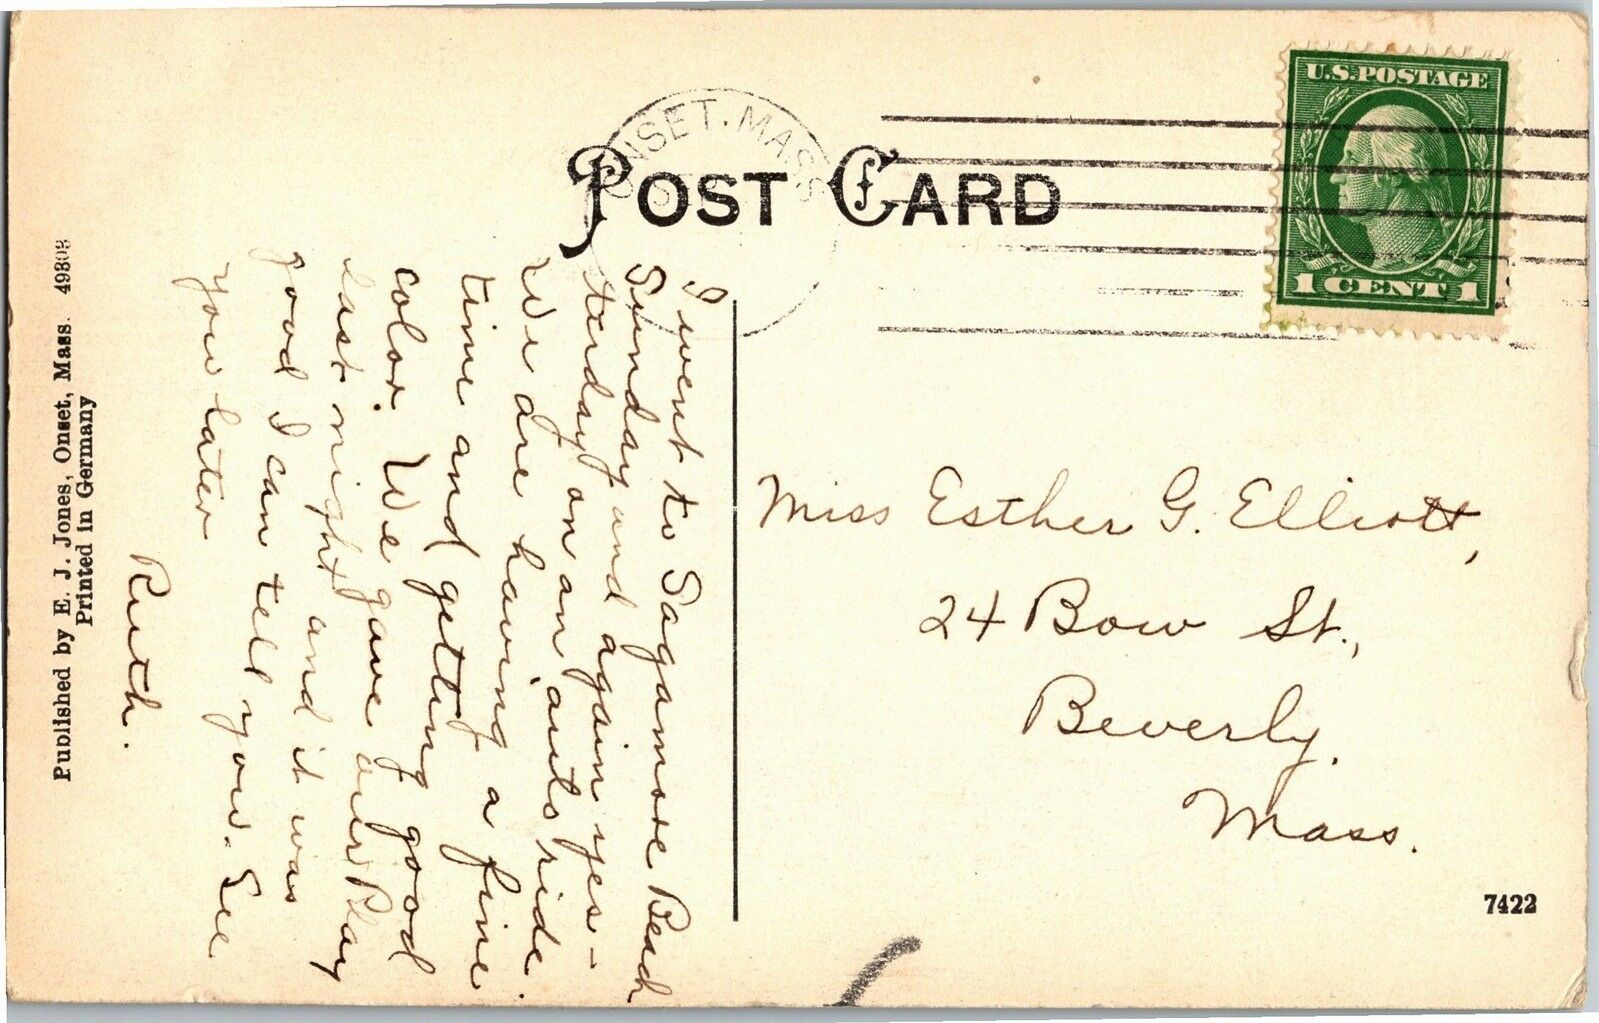 POST CARD
ONSET, MASS
U.S. POSTAGE
1 CENT 1
I went to Sagamore Beach
Sunday and again yes-
terday on an auto ride.
We are having a fine
time and getting good
color. We gave our Play
last night and it was
good I can tell you. See
you later
Ruth.
Miss Esther G. Elliott,
24 Bow St.,
Beverly.
Mass.
Published by E. J. Jones, Onset, Mass.
Printed in Germany
7422